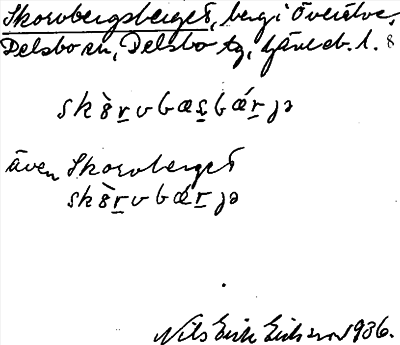 Skorvbergsberget, berg i Överälve,
Delsbo sn, Delsbo tg, Gävleb. l. 8
skòrvbæsbǽrjə
även Skorvberget
skòrvbǽrjə
Nils Erik Eriksson 1936.